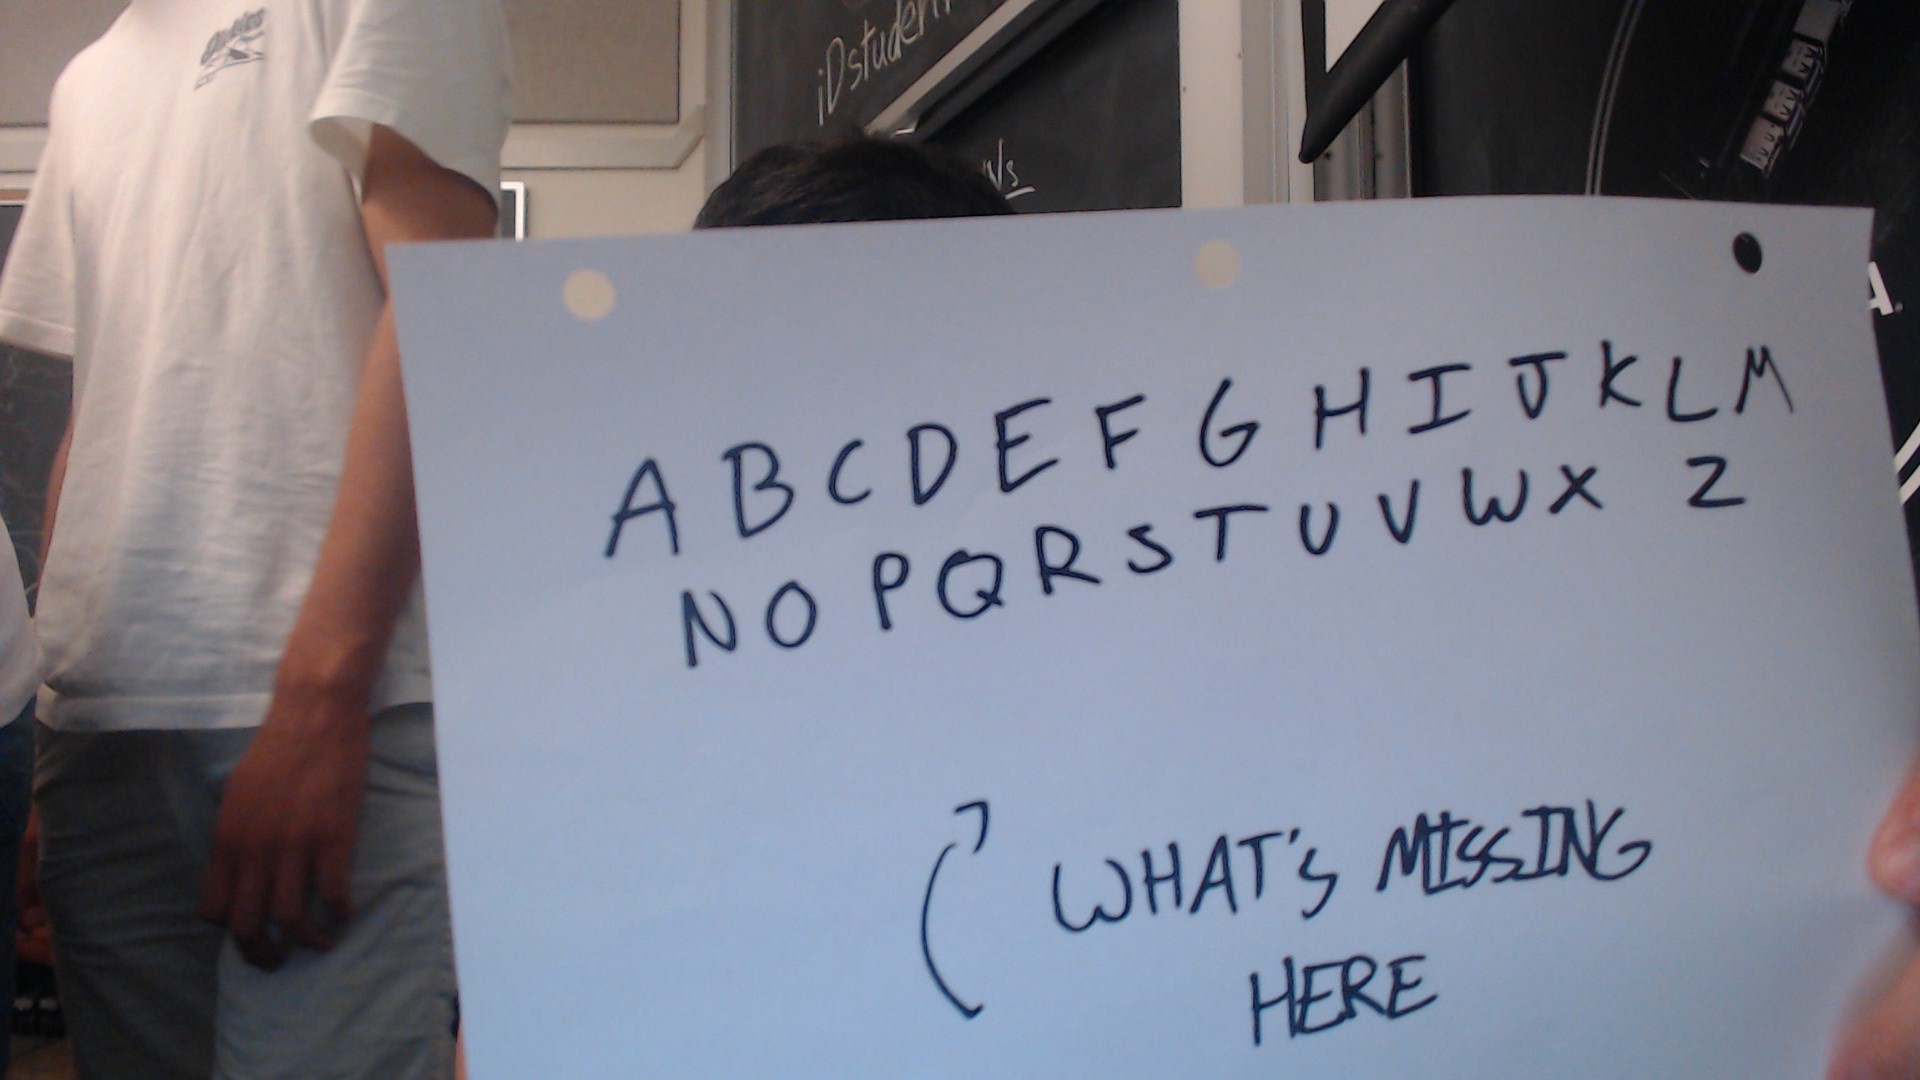 iDstuden
A B C D E F G H I J K L M
N O P Q R S T U V W X Z
WHAT'S MISSING
HERE